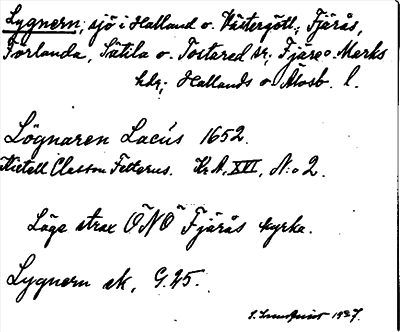 Lygnern, sjö i Halland o. Västergötl.; Fjärås,
Förlanda, Sätila o. Tostared sr. Fjäre o. Marks
hdr; Hallands o. Älvsb. l.
Lögnaren Lacús 1652.
Kietell Classon Felterus. Kr. A. XVI, N:o 2.
Läge strax ÖNÖ Fjärås kyrka.
Lygnern sk, G.45.
1927.